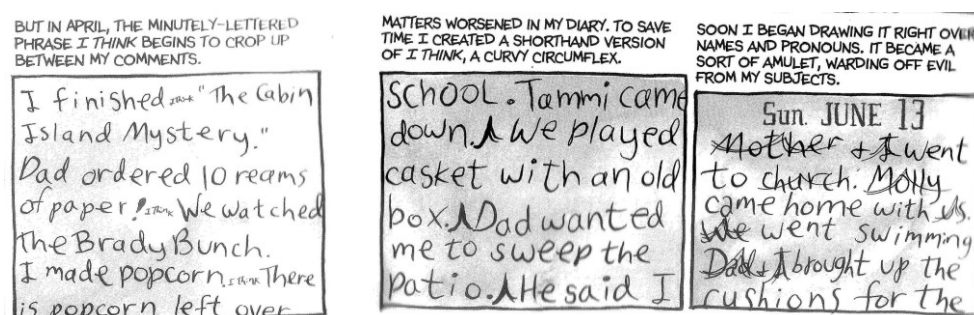 BUT IN APRIL, THE MINUTELY-LETTERED
PHRASE I THINK BEGINS TO CROP UP
BETWEEN MY COMMENTS.
I finished I think "The Cabin
Island Mystery."
Dad ordered 10 reams
of paper! I think We watched
The Brady Bunch.
I made popcorn. I think There
is popcorn left over
MATTERS WORSENED IN MY DIARY. TO SAVE
TIME I CREATED A SHORTHAND VERSION
OF I THINK, A CURVY CIRCUMFLEX.
SCHOOL. Tammi came
down. We played
casket with an old
box. Dad wanted
me to sweep the
patio. He said I
SOON I BEGAN DRAWING IT RIGHT OVER
NAMES AND PRONOUNS. IT BECAME A
SORT OF AMULET, WARDING OFF EVIL
FROM MY SUBJECTS.
Sun. JUNE 13
Mother & I went
to church. Molly
came home with us.
We went swimming
Dad & I brought up the
cushions for the